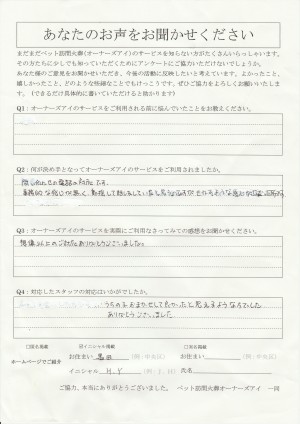 あなたのお声をお聞かせください
まだまだペット訪問火葬(オーナーズアイ)のサービスを知らない方がたくさんいらっしゃいます。
その方たちに少しでも知っていただくためにアンケートにご協力いただけないでしょうか。
あなた様のご意見をお聞かせいただき、今後の活動に反映したいと考えています。よかったこと、
嬉しかったこと、どのような些細なことでもけっこうです。ぜひご協力をよろしくお願いいたします。(できるだけ具体的に書いていただけると助かります)
Q1:オーナーズアイのサービスをご利用される前に悩んでいたことをお教えください。
Q2:何が決め手となってオーナーズアイのサービスをご利用されましたか。
Q3:オーナーズアイのサービスを実際にご利用なさってみての感想をお聞かせください。
想像以上に
ありがとうございました。
Q4:対応したスタッフの対応はいかがでしたか。
うちの子をおまかせして良かったと思えるような方でした
ありがとうございました
□匿名掲載 ☑イニシャル掲載 □実名掲載
お住まい 墨田 (例:中央区) お住まい (例:中央区)
ホームページでご紹介
イニシャル H.Y (例:T.H) 氏名
ご協力、本当にありがとうございました。 ペット訪問火葬オーナーズアイ 一同